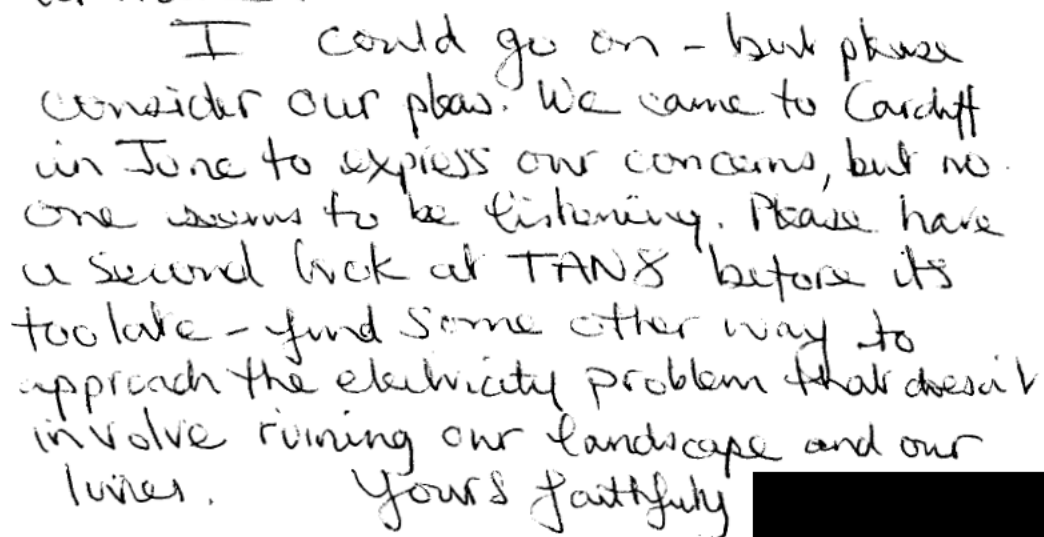 I could go on - but please
consider our pleas. We came to Cardiff
in June to express our concerns, but no
one seems to be listening. Please have
a second look at TAN8 before its
too late - find some other way to
approach the electricity problem that doesn't
involve ruining our landscape and our
lives. Yours faithfully